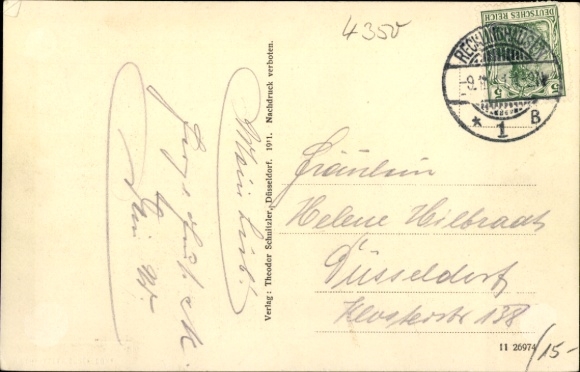 4350
DEUTSCHES REICH
5
5
RECKLINGHAUSEN
* 1 B
Mein Lieb!
Verlag: Theodor Schnitzler, Düsseldorf. 1911. Nachdruck verboten.
Fräulein
Helene Hilbradt
Düsseldorf
Klosterstr 138
11 26974
/15-